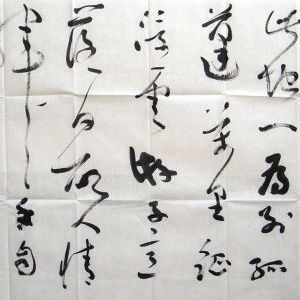 此地一為别孤
蓬萬里征
浮雲游子意
落日故人情
句